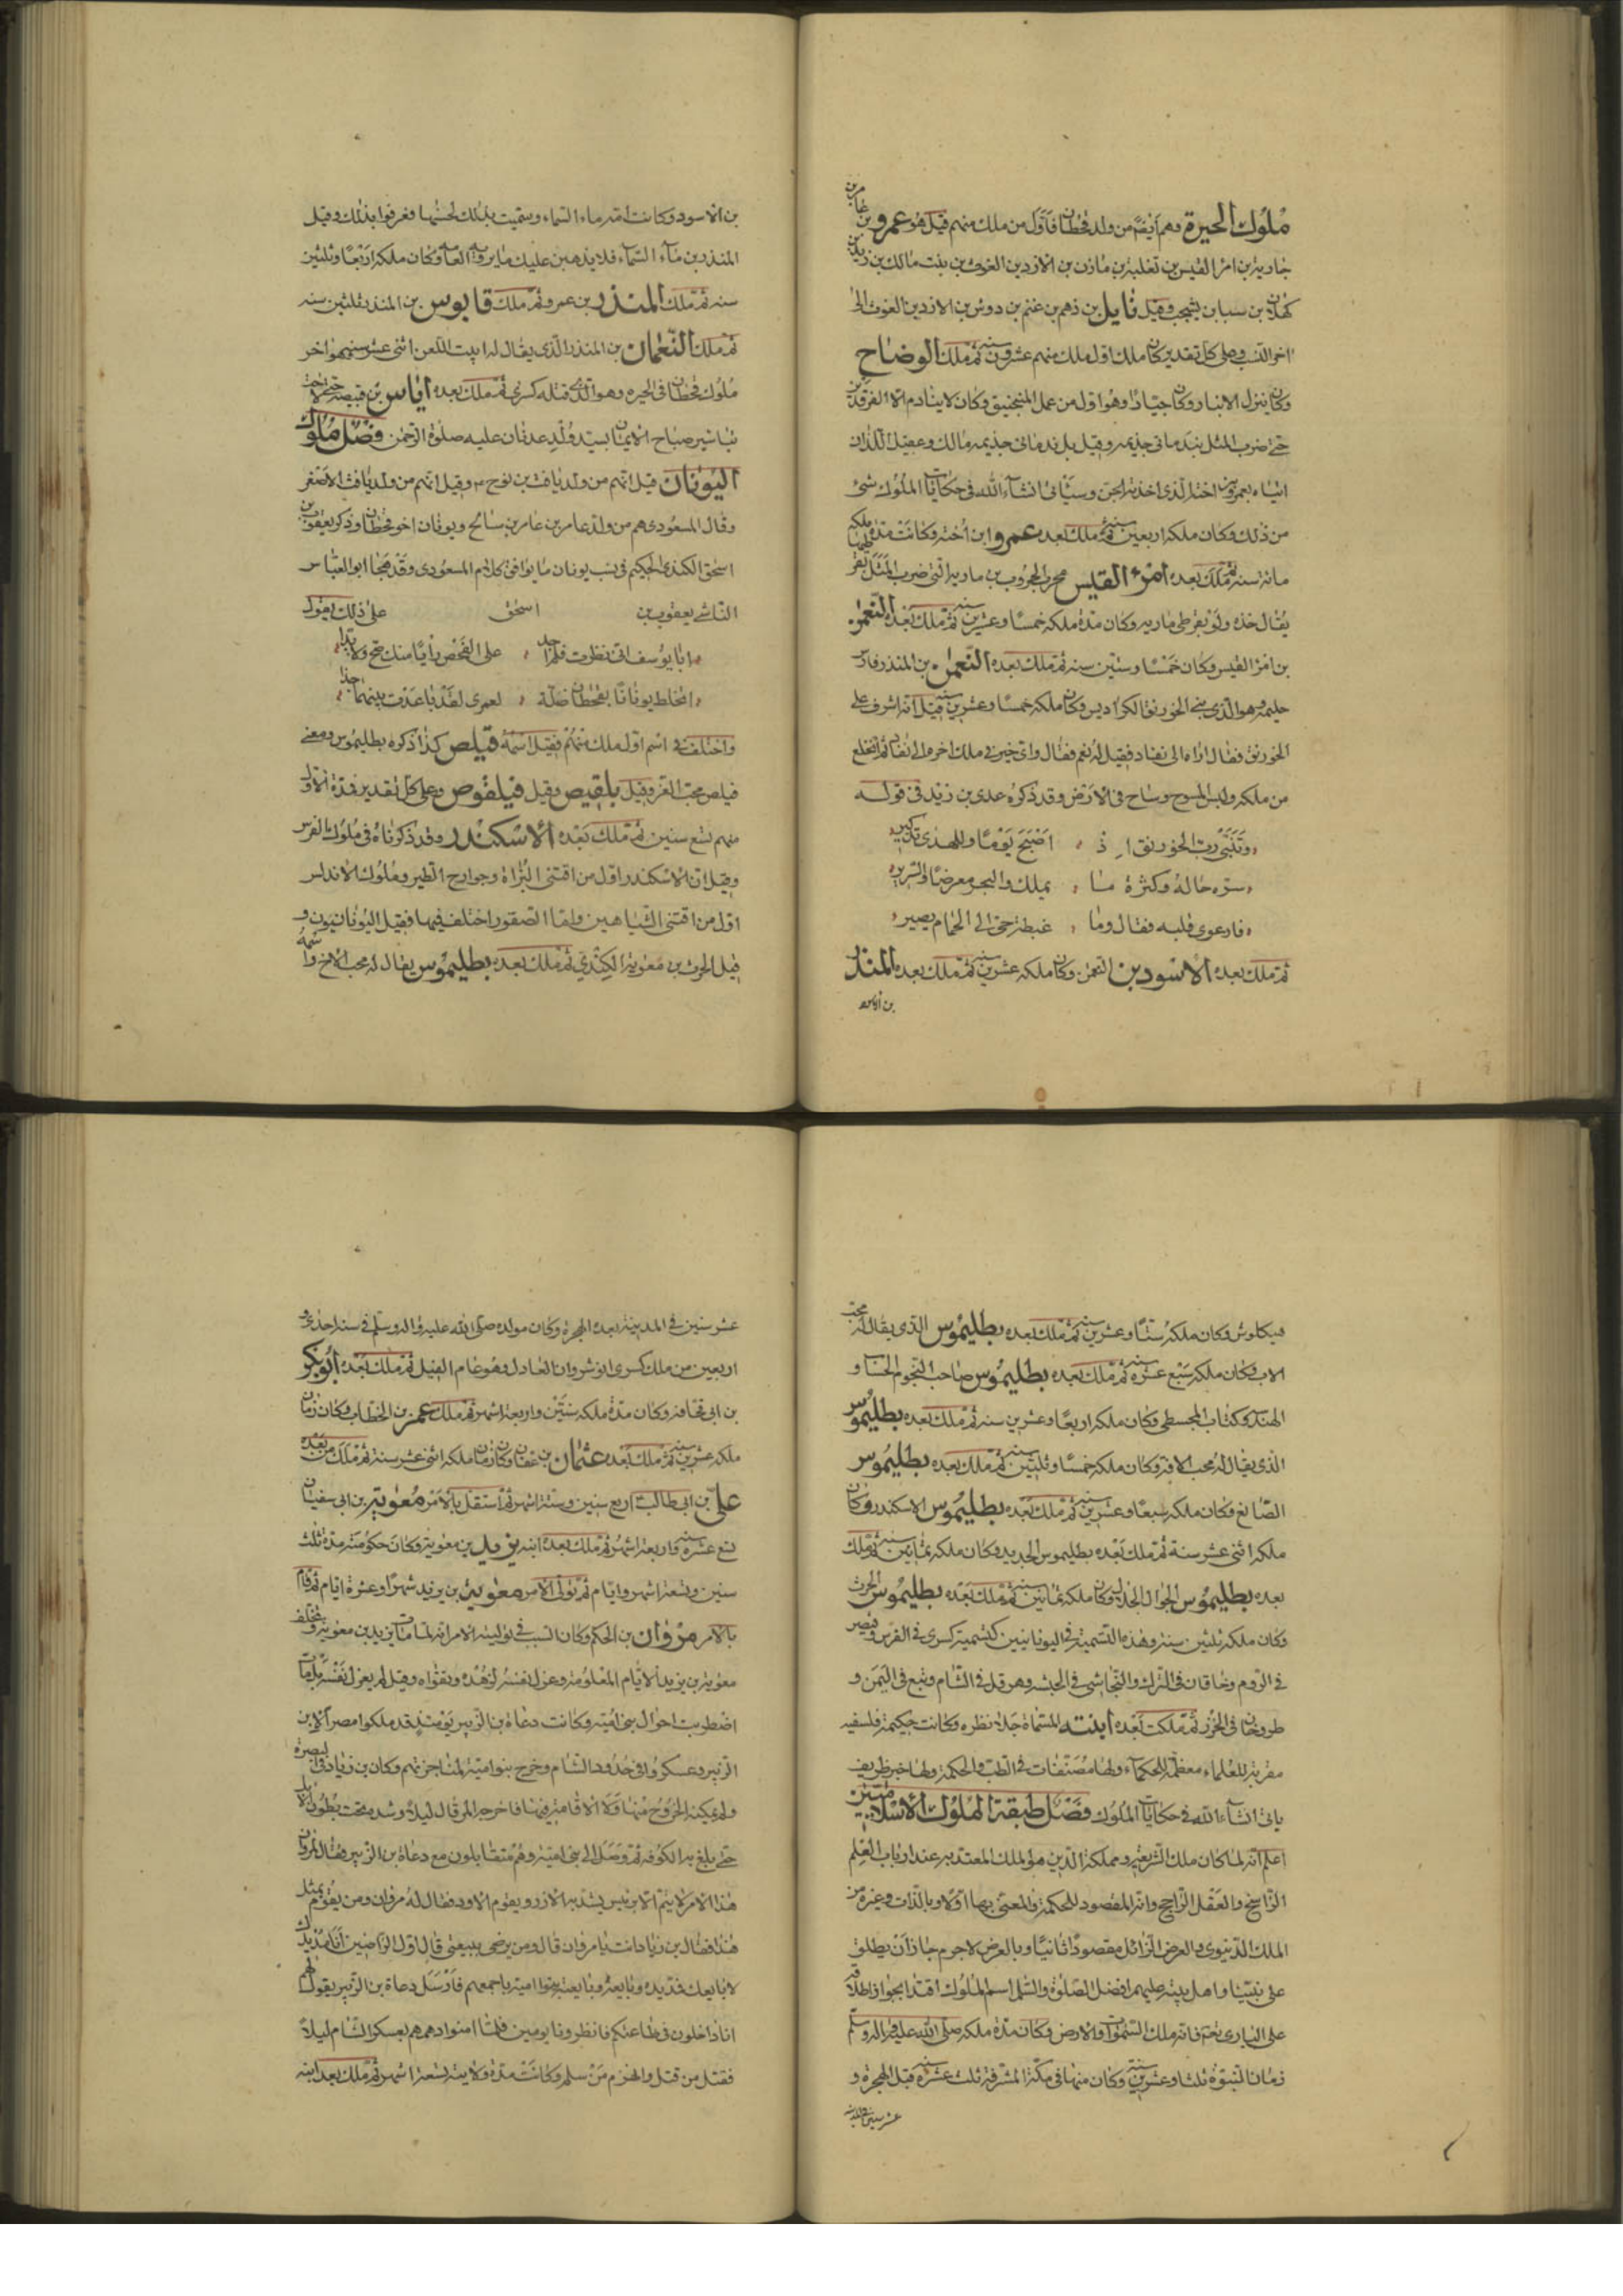 ملوك الحيرة وهم أيضًا من ولد قحطان فأول من ملك منهم قيل هو عمرو بن عامر بن
جارية بن امرئ القيس بن ثعلبة بن مازن بن الازد بن الغوث بن بنت مالك بن زيد بن
كهلان بن سبا بن يشجب وقيل نايل بن دهم بن غنم بن دوس بن الازد بن الغوث الى
اخر النسب وعلى كل تقدير كان ملك اول ملك منهم عشرون سنة ثم ملك الوضاح
وكان ينزل الانبار وكان جبّارًا وهو اول من عمل المنجنيق وكان لا ينادم الا الفرقدين
حتى ضرب المثل بندمانى جذيمه وقيل بل ندمانى جذيمه مالك وعقيل اللذان
اتياه بعمرو بن اخته الذى اخذته الجن وسيأتى انشآء الله فى حكايات الملوك شئ
من ذلك وكان ملكه اربعين سنة ثم ملك بعده عمرو ابن اخته وكانت مدة ملكه
مائة سنه ثم ملك بعده امرء القيس محرب الحروب بن ماريه التى ضرب المثل بقرطيها
يقال خذه ولو بقرطى ماريه وكان مدة ملكه خمسًا وعشرين سنة ثم ملك بعده النعمن
بن امرء القيس وكان خمسًا وستين سنه ثم ملك بعده النعمن بن المنذر فارس
حليمه وهو الذى بنى الخورنق الكراديس وكان ملكه خمسًا وعشرين سنة قيل انه اشرف على
الخورنق فقال اراه الى نفاد فقيل له نعم فقال واى خير فى ملك اخره الى نفاد ثم انخلع
من ملكه ولبس المسوح وساح فى الارض وقد ذكره عدى بن زيد فى قوله
وتبيّن ربّ الخورنق اِذ ، اصبح يومًا وللهدى تذكير
سرّه حاله وكثرة ما ، يملك والبحر معرضًا والسرير
فارعوى قلبه فقال وما ، غبطة حىّ الى الحمام يصير
ثم ملك بعده الاسود بن النعمن وكان ملكه عشرين سنة ثم ملك بعده المنذر
بن الاسود
بن الاسود وكانت امه ماء السماء وسميت بذلك لحسنها فعرفوا بذلك وقيل
المنذر بن مآء السمآء فلا يذهبن عليك ما يرويه العامه وكان ملكه اربعًا وثلثين
سنه ثم ملك المنذر بن عمرو ثم ملك قابوس بن المنذر ثلثين سنه
ثم ملك النعمان بن المنذر الذى يقال له ابيت اللعن اثنى عشر سنه وهو اخر
ملوك قحطان فى الحيره وهو الذى قتله كسرى ثم ملك بعده اياس بن قبيصه حتى لاحت
تباشير صباح الايمان بسيد ولد عدنان عليه صلوة الرحمن فصل ملوك
اليونان قيل انهم من ولد يافث بن نوح ع وقيل انهم من ولد يافث الاصغر
وقال المسعودى هم من ولد عامر بن عابر بن سالح ويونان اخو قحطان وذكر يعقوب بن
اسحق الكندى الحكيم فى نسب يونان ما يوافق كلام المسعودى وقد هجا ابو العباس
الناشى يعقوب بن اسحق على ذلك يقول
ابا يوسف انى نظرت فلم اجد ، على الفحص رأيًا منك صح ولا بدا
اتخلط يونانًا بقحطان ضلّة ، لعمرى لقد باعدت بينهما جدا
واختلف فى اسم اول ملك منهم فقيل اسمه فيلص كذا ذكره بطليموس ومعنى
فيلص محب الفرس وقيل بلقيص وقيل فيلفوص وعلى كل تقدير فمدة الاول
منهم تسع سنين ثم ملك بعده الاسكندر وقد ذكرناه فى ملوك الفرس
وقيل ان الاسكندر اول من اقتنى البزاة وجوارح الطير وملوك الاندلس
اول من اقتنى الشياهين واما الصقور اختلف فيها فقيل اليونانيون و
قيل الحرث بن معوية الكندى ثم ملك بعده بطليموس يقال له محب الاخ واسمه
فيكلوش وكان ملكه ستًا وعشرين سنة ثم ملك بعده بطليموس الذى يقال له محب
الاب وكان ملكه سبع عشره سنة ثم ملك بعده بطليموس صاحب النجوم الحساب و
الهندسة وكتاب المجسطى وكان ملكه اربعًا وعشرين سنه ثم ملك بعده بطليموس
الذى يقال له محب الام وكان ملكه خمسًا وثلثين سنة ثم ملك بعده بطليموس
الصّايغ وكان ملكه سبعًا وعشرين سنة ثم ملك بعده بطليموس الاسكندر وكان
ملكه اثنى عشر سنة ثم ملك بعده بطليموس الحديد وكان ملكه ثمانين سنة ثم ملك
بعده بطليموس الجوال وكان ملكه ثمانين سنة ثم ملك بعده بطليموس الحرث
وكان ملكه ثلثين سنة وهذه التسمية فى اليونانيين كتسمية كسرى فى الفرس وقيصر
فى الروم وخاقان فى الترك والنجاشى فى الحبشه وهرقل فى الشام وتبع فى اليمن و
طرخان فى الخزر ثم ملكت بعده ابنته المسماة نظره وكانت حكيمة فلسفيه
مقربة للعلماء معظّمة للحكمآء ولها مصنفات فى الطب والحكمة ولها خبر ظريف
يأتى انشآء الله فى حكايات الملوك فصل طبقة الملوك الاسلاميين
اعلم انه لما كان ملك الشريعه ومملكة الدين هو الملك المعتد به عند ارباب العلم
الراسخ والعقل الراجح وانه المقصود للحكمة والمعنى بها اولا وبالذات وغيره من
الملك الدنيوى والعرض الزائل مقصودًا ثانيًا وبالعرض لا جرم جاز ان يطلق
على نبيّنا واهل بيته عليهم افضل الصلوة والسلام اسم الملوك اقتدا بجواز اطلاقه
على البارى تعم فانه ملك السموات والارض وكان مدة ملكه صلى الله عليه واله وسلم
زمان النبوة ثلثا وعشرين سنة وكان منها فى مكة المشرفة ثلث عشره سنة قبل الهجرة و
عشر سنين فى المدينه
عشر سنين فى المدينة بعد الهجرة وكان مولده صلى الله عليه واله وسلم فى سنه احدى و
اربعين من ملك كسرى انوشروان العادل وهو عام الفيل ثم ملك بعده ابو بكر
بن ابى قحافه وكان مدة ملكه سنتين واربعة اشهر ثم ملك عمر بن الخطاب وكان زمان
ملكه عشرين سنة ثم ملك بعده عثمان بن عفان وكان زمان ملكه اثنى عشر سنة ثم ملك من بعده
على بن ابى طالب اربع سنين وستة اشهر ثم استقل بالامر معوية بن ابى سفيان
تسع عشرة سنة واربعة اشهر ثم ملك بعده ابنه يزيد بن معوية وكان حكومته مدة ثلث
سنين وتسعة اشهر وايام ثم تولى الامر معوية بن يزيد شهرًا وعشرة ايام ثم قام
بالامر مروان بن الحكم وكان السبب فى توليته الامر انه لما مات يزيد بن معوية وتخلف
معوية بن يزيد الايام المعلومة وعزل نفسه لزهده وتقواه وقيل لم يعزل نفسه بل مات
اضطربت احوال بنى اميّة وكانت دعاة بن الزبير يومئذ قد ملكوا مصر لابن
الزبير وعسكروا فى حدود الشام وخرج بنو امية لمناجزتهم وكان بن زياد فى البصرة
ولم يمكنه الخروج منها ولا الاقامة فيها فاخرجه المرقال ليلا وشد تحت بطون الابل
حتى بلغ به الكوفه ثم وصل الى بنى امية وهم متقابلون مع دعاة بن الزبير فقال لمروان
هذا الامر لا يتم الا برئيس يشد به الازر ويقوم الاود فقال له مروان ومن يقوم بمثل
هذا فقال بن زياد انت يا مروان قال ومن يرضى ببيعتى قال اول الراضين انا مد يدك
لابايعك فمد يده وبايعه وبايعته بنوا امية باجمعهم فارسل دعاة بن الزبير يقول لهم
انا داخلون فى طاعتكم فانظرونا يومين فلما امنوا دهمهم بعسكر الشام ليلاً
فقتل من قتل وانهزم من سلم وكانت مدة ولايته تسعة اشهر ثم ملك بعد ابنه